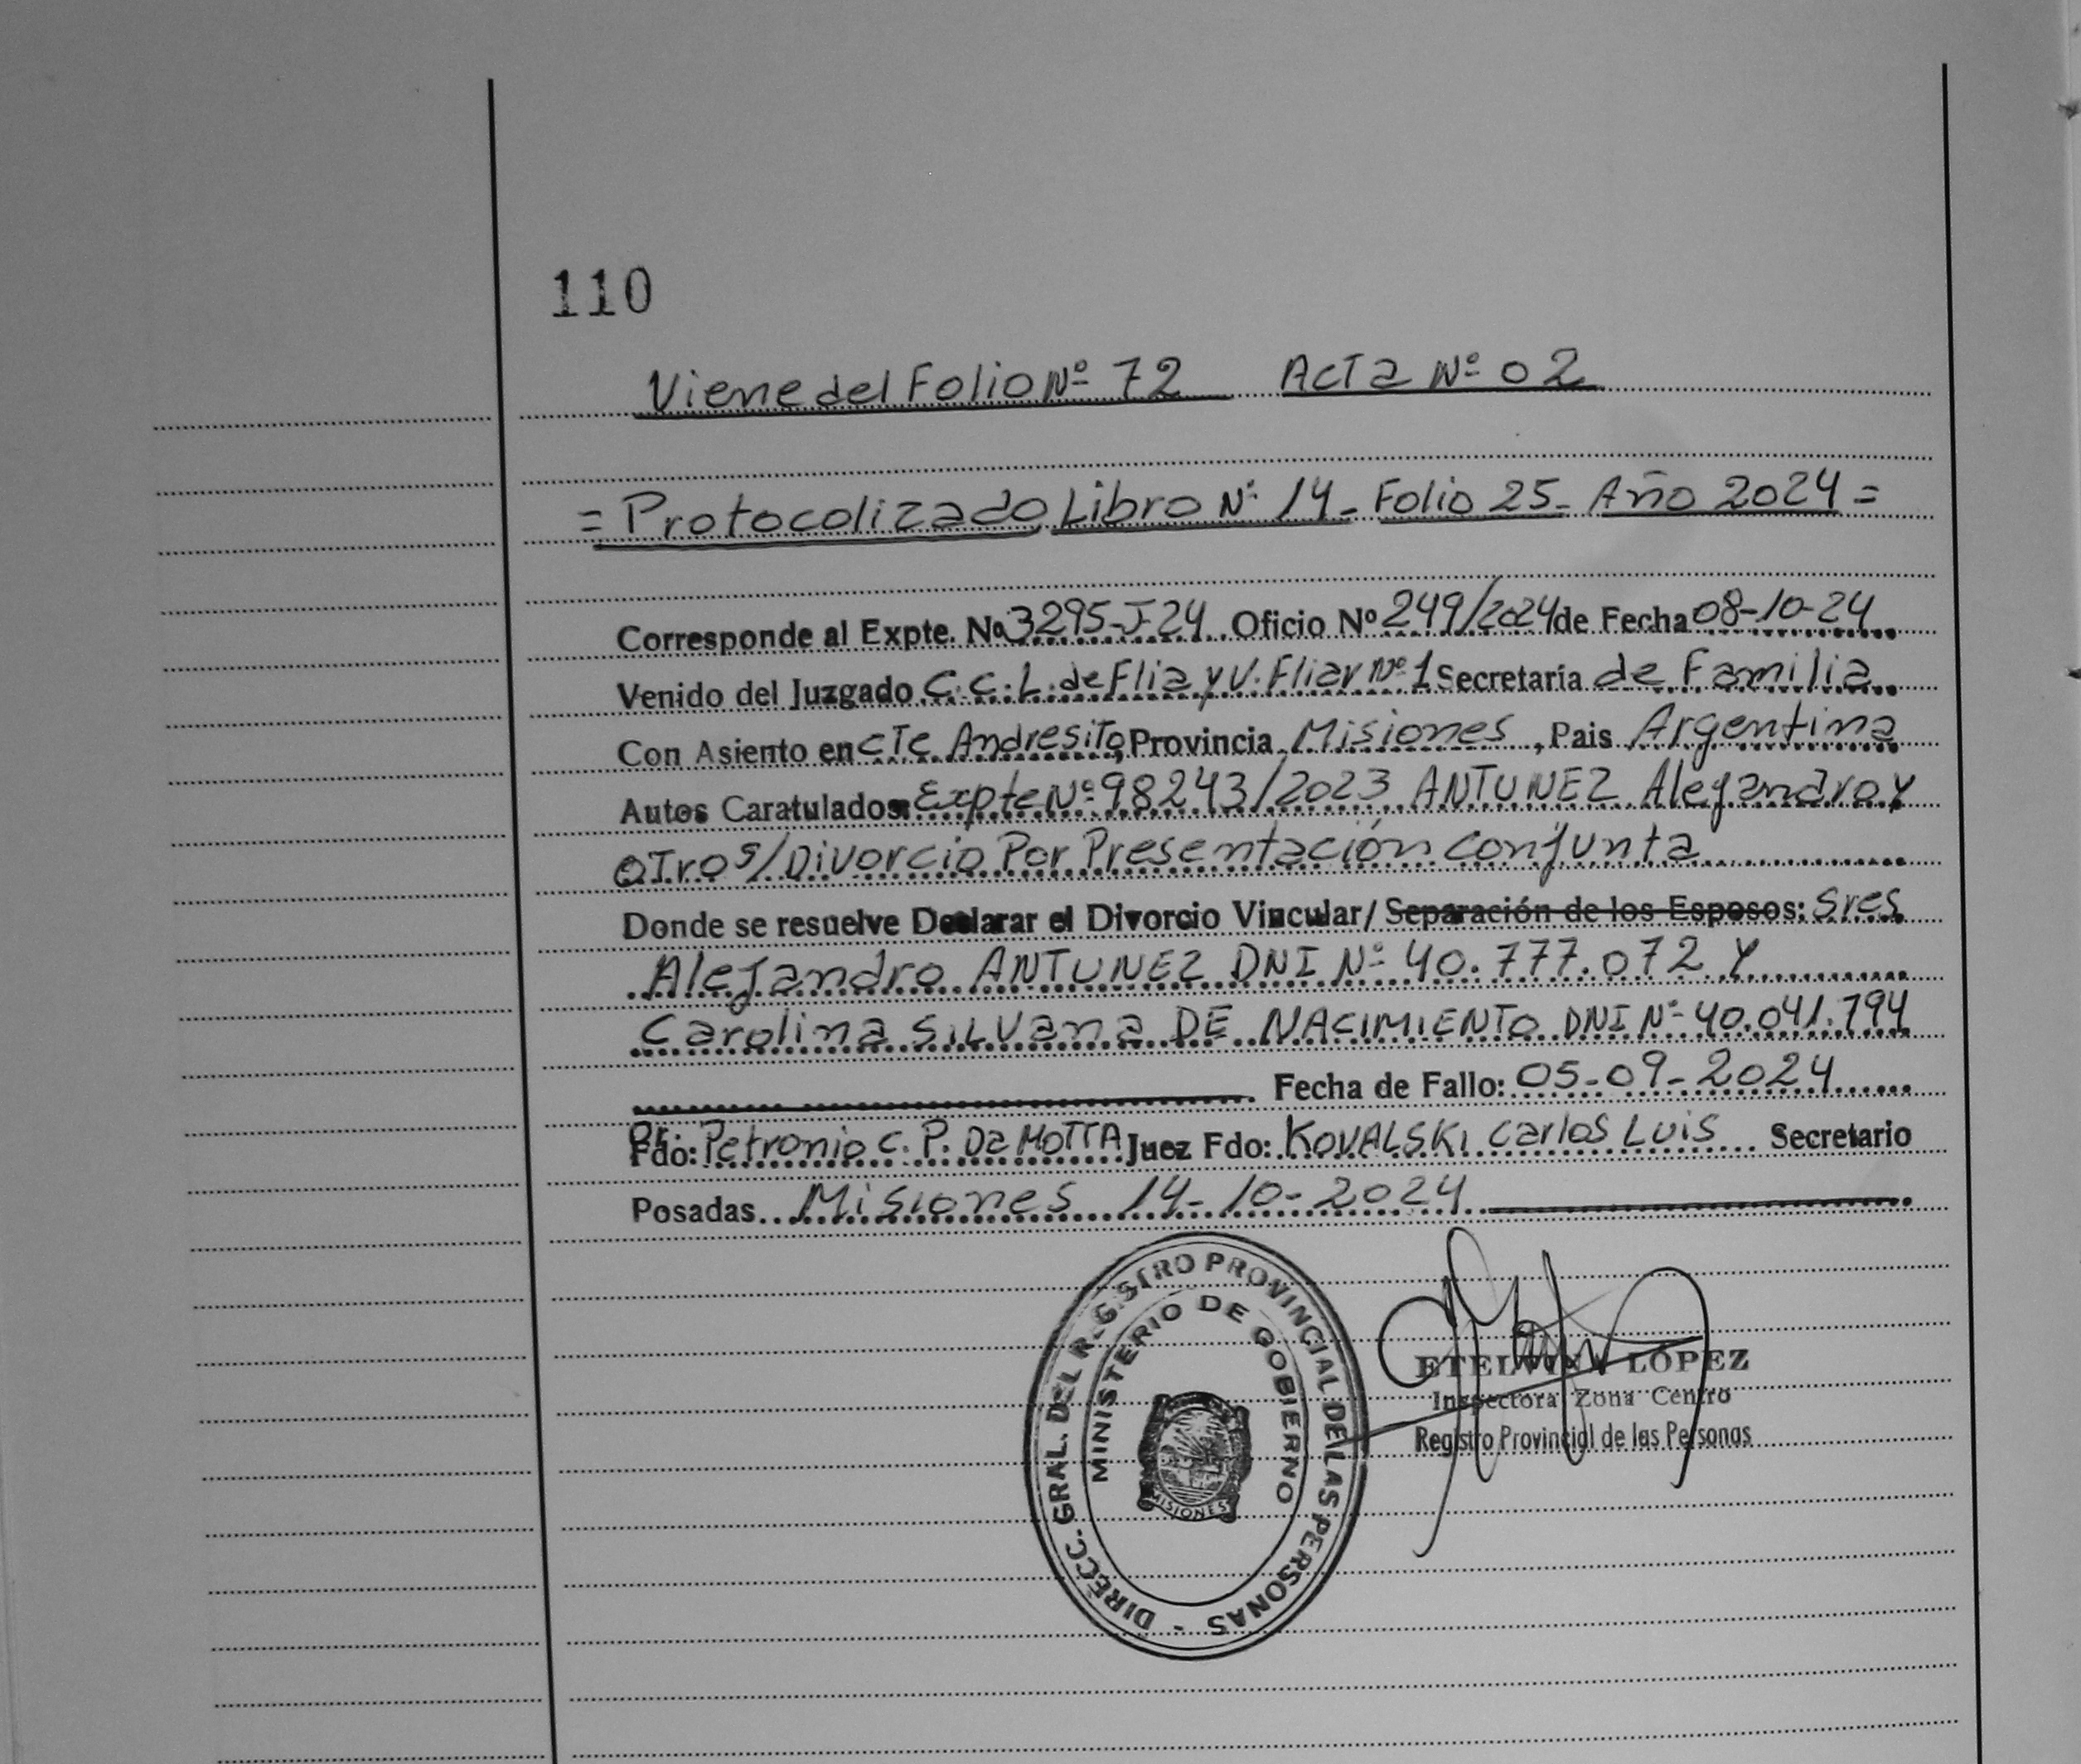 110
Viene del Folio Nº 72 Acta Nº 02
= Protocolizado Libro Nº 14 - Folio 25 - Año 2024 =
Corresponde al Expte. Nº 3295-J-24 Oficio Nº 249/2024 de Fecha 08-10-24
Venido del Juzgado C.C.L. de Flia y V. Fliar Nº 1 Secretaría de Familia
Con Asiento en cTe Andresito, Provincia Misiones, Pais Argentina
Autos Caratulados: Expte Nº 98243/2023 ANTUNEZ Alejandro y
otro s/Divorcio Por Presentación conjunta
Donde se resuelve Declarar el Divorcio Vincular/ Separación de los Esposos: Sres
Alejandro ANTUNEZ DNI Nº 40.777.072 Y
Carolina SILVana DE NACIMIENTO DNI Nº 40.041.794
Fecha de Fallo: 05-09-2024
Fdo: Dr. Petronio C. P. Da MOTTA Juez Fdo: KOVALSKI Carlos Luis Secretario
Posadas Misiones 14-10-2024
DIRECC. GRAL. DEL REGISTRO PROVINCIAL DE LAS PERSONAS -
MINISTERIO DE GOBIERNO
MISIONES
ETELVINA LOPEZ
Inspectora Zona Centro
Registro Provincial de las Personas